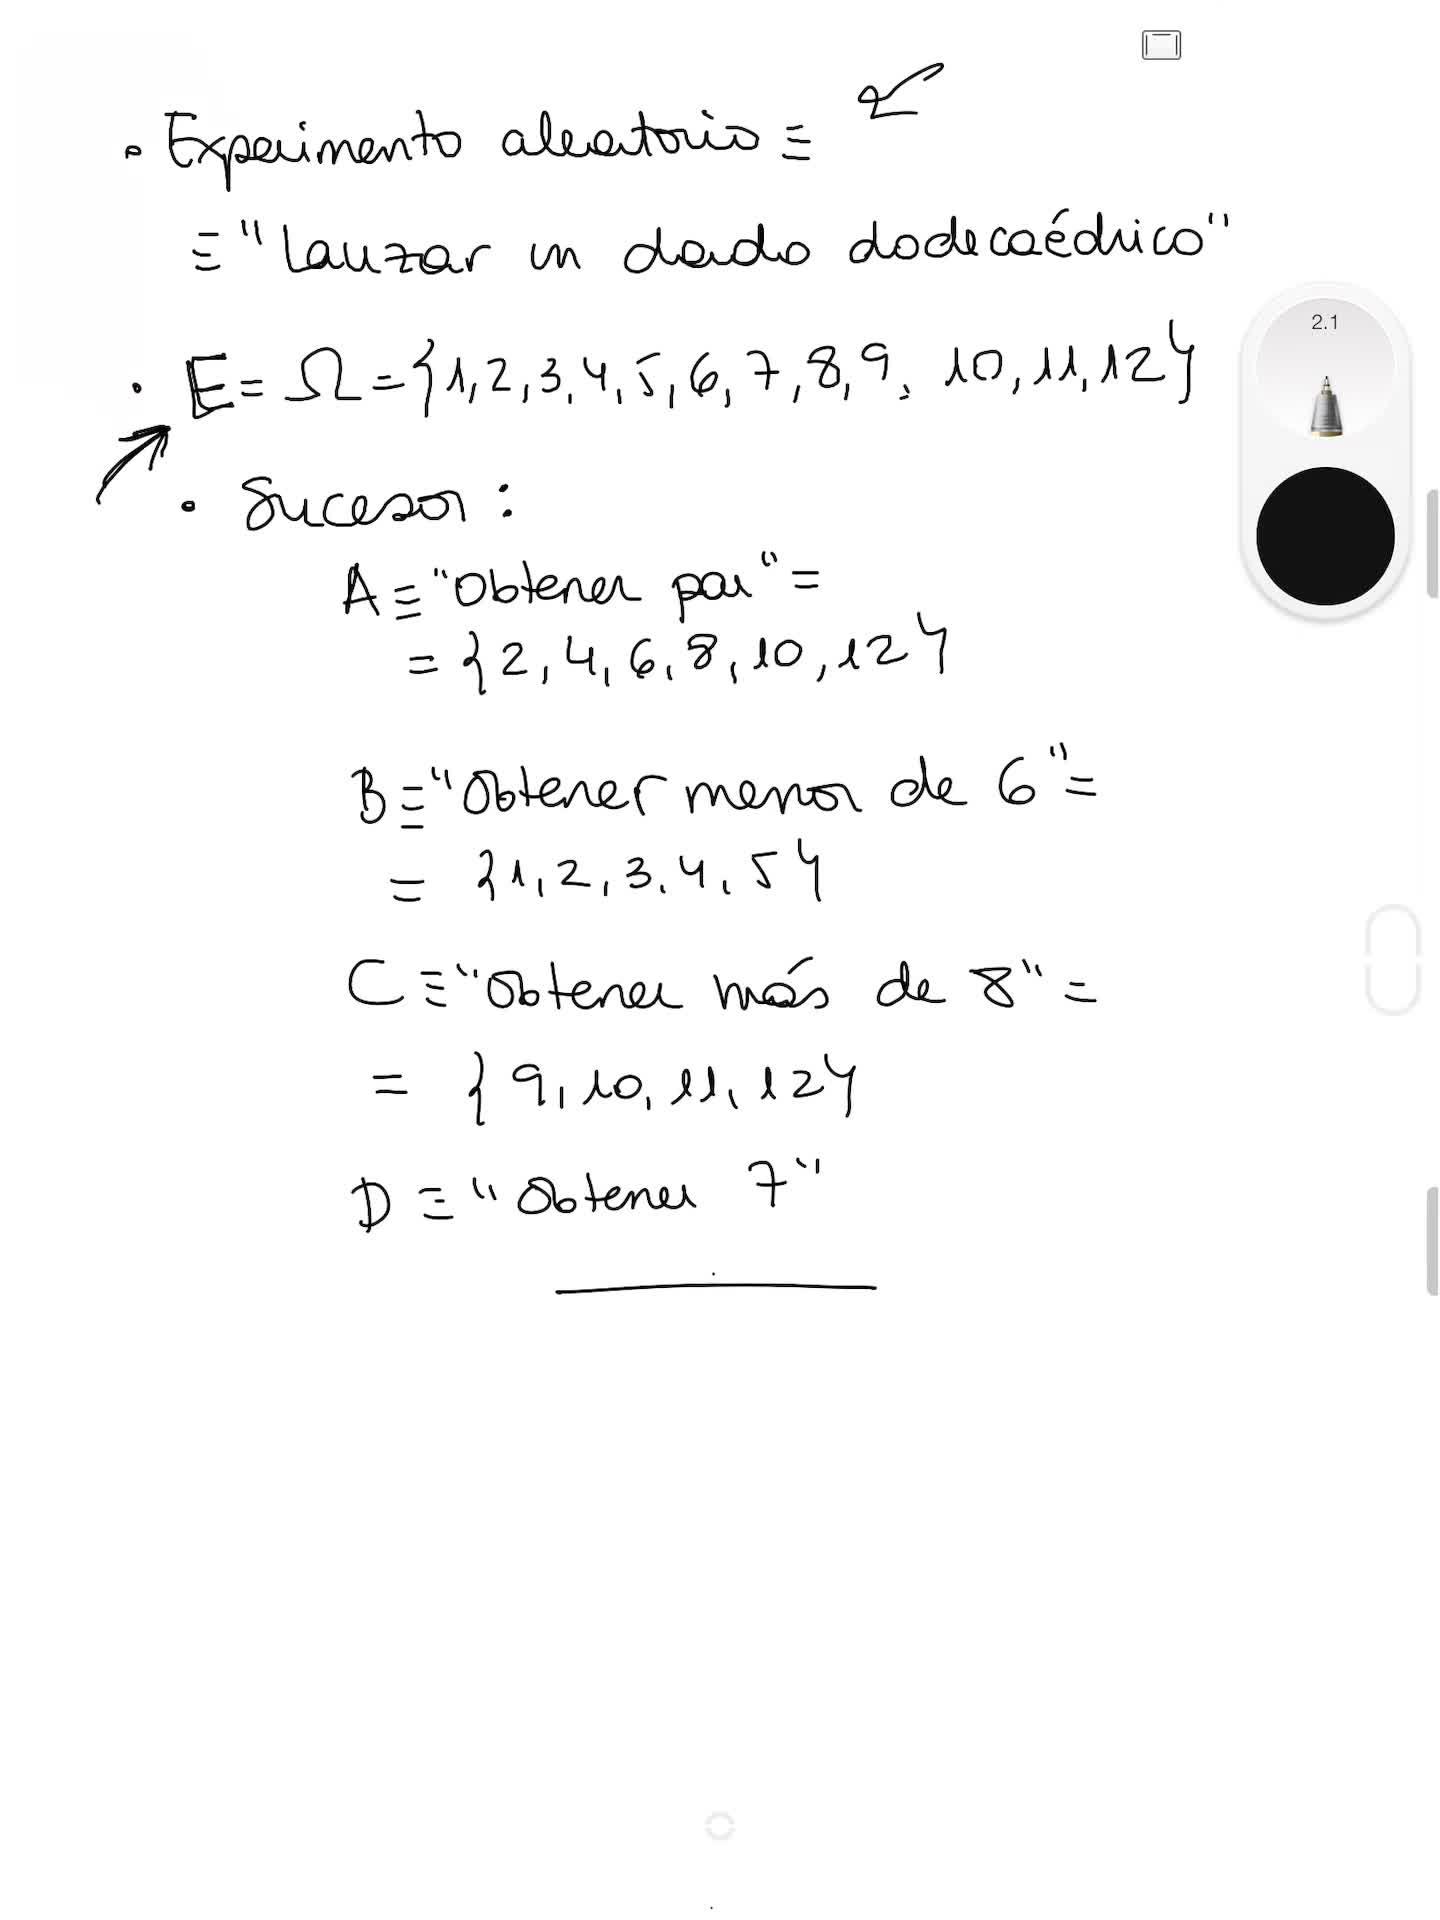 • Experimento aleatorio ≡
≡ "Lanzar un dado dodecaédrico"
• E = Ω = {1, 2, 3, 4, 5, 6, 7, 8, 9, 10, 11, 12}
• Sucesos:
A ≡ "Obtener par" =
= {2, 4, 6, 8, 10, 12}
B ≡ "Obtener menor de 6" =
= {1, 2, 3, 4, 5}
C ≡ "Obtener más de 8" =
= {9, 10, 11, 12}
D ≡ "Obtener 7"
2.1